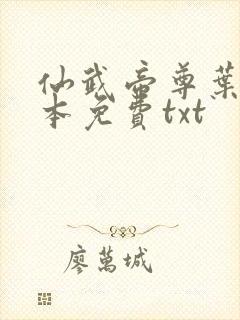 仙武帝尊葉
本免費txt
廖萬城